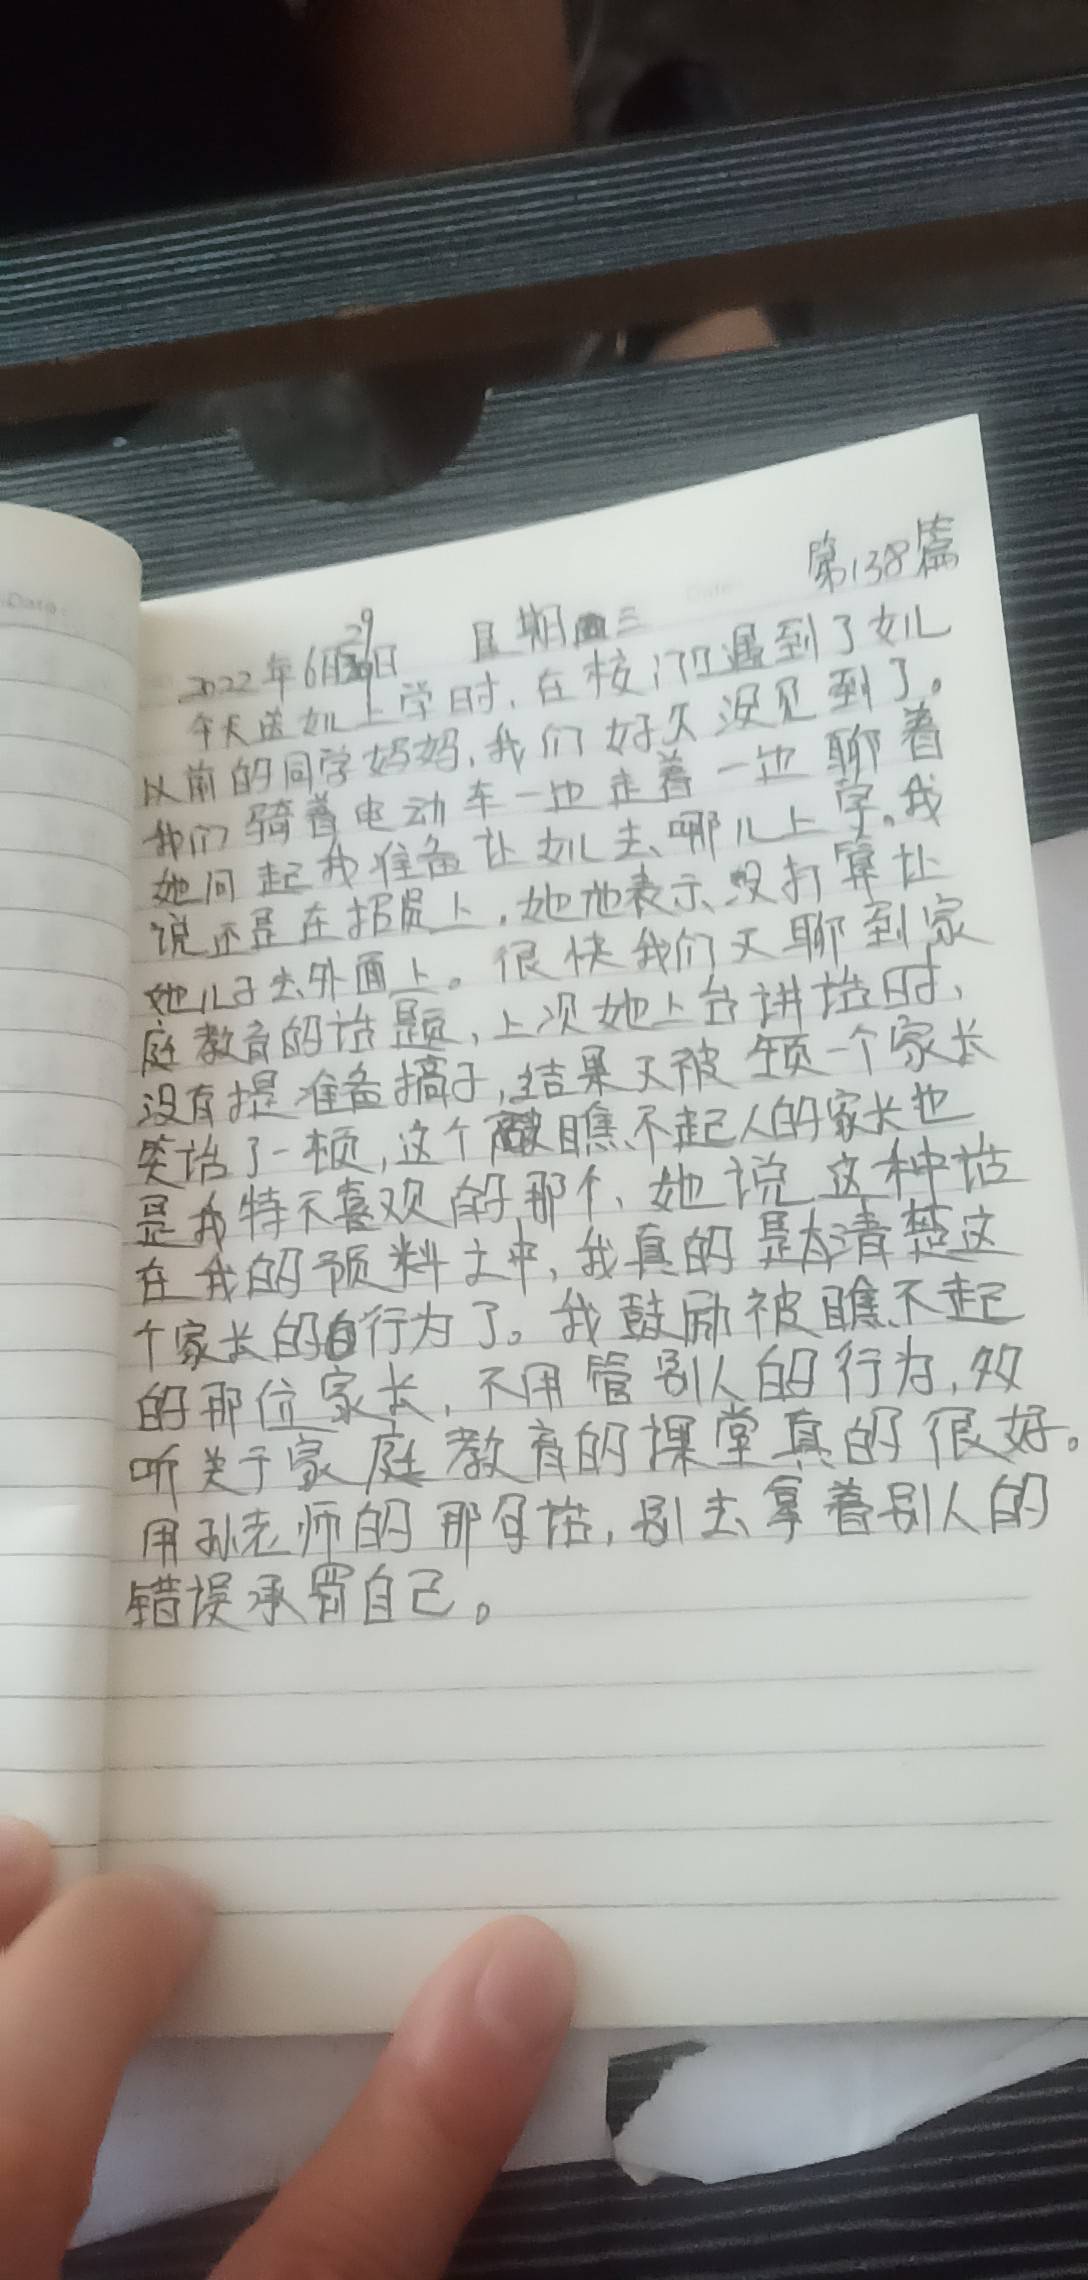 第138篇
2022年6月29日 星期三
今天送女儿上学时,在校门口遇到了女儿
以前的同学妈妈,我们好久没见到了。
我们骑着电动车一边走着一边聊着
她问起我准备让女儿去哪儿上学。我
说还是在招贤上,她也表示没打算让
她儿子去外面上。很快我们又聊到家
庭教育的话题,上次她上台讲话时,
没有提准备搞子,结果又被 一个家长
笑话了一顿,这个瞧不起人的家长也
是我特不喜欢的那个,她说这种话
在我的预料之中,我真的是太清楚这
个家长的行为了。我鼓励被瞧不起
的那位家长,不用管别人的行为,效
听关于家庭教育的课堂真的很好。
用孙老师的那句话,别去拿着别人的
错误承罚自己。
Date